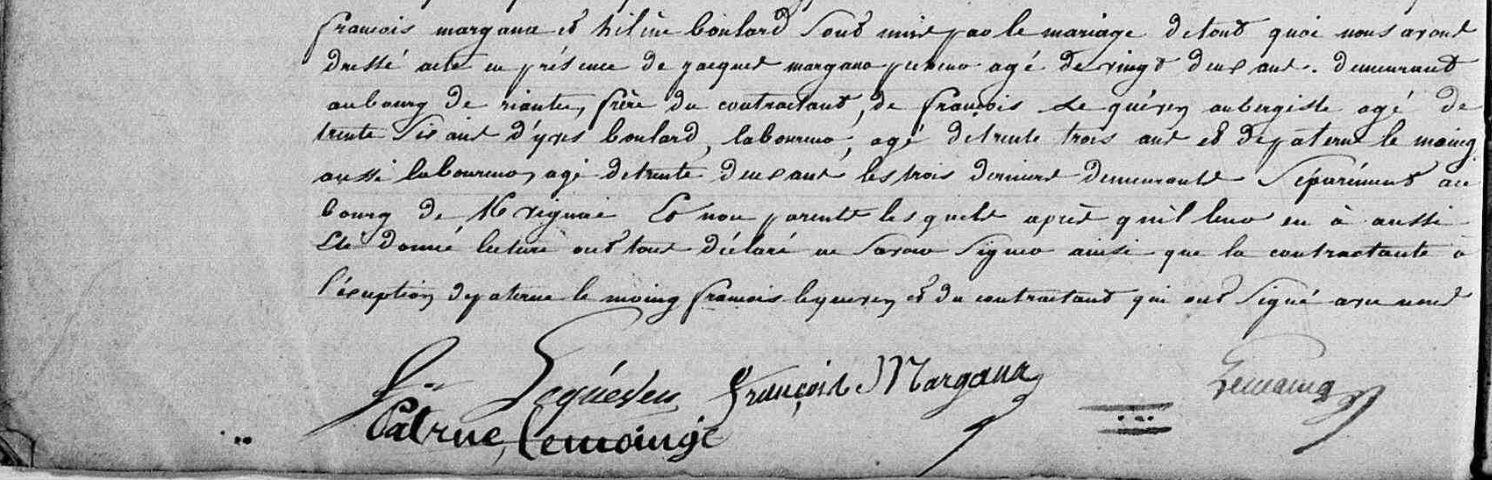 françois margana et hélène boulard sont unis par le mariage de tout quoi nous avons
dressé acte en présence de jacques margana agé de vingt deux ans. demeurant
au bourg de riantec, frère du contractant, de françois Le quéven aubergiste agé de
trente six ans d'yves boulard, laboureur, agé de trente trois ans et de paterne le moing
aussi laboureur, agé de trente deux ans les trois derniers demeurants séparément au
bourg de Kvignac Et non parents lesquels après qu'il leur en à aussi
été donné lecture ont tous déclaré ne savoir signer ainsi que la contractante à
l'éxeption de paterne le moing françois lequeven et du contractant qui ont signé avec nous
Lequéven françois Margana Lemoing
Patrne Lemoinge